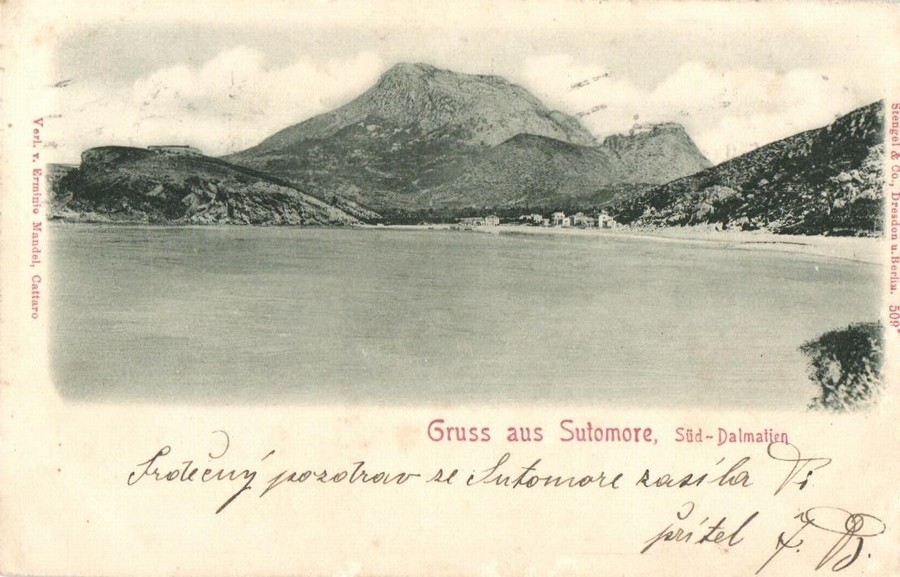 Verl. v. Erminio Mandel, Cattaro
Stengel & Co., Dresden u. Berlin. 509
Gruss aus Sutomore, Süd-Dalmatien
Srdečný pozdrav ze Sutomore zasíla Ti
přítel